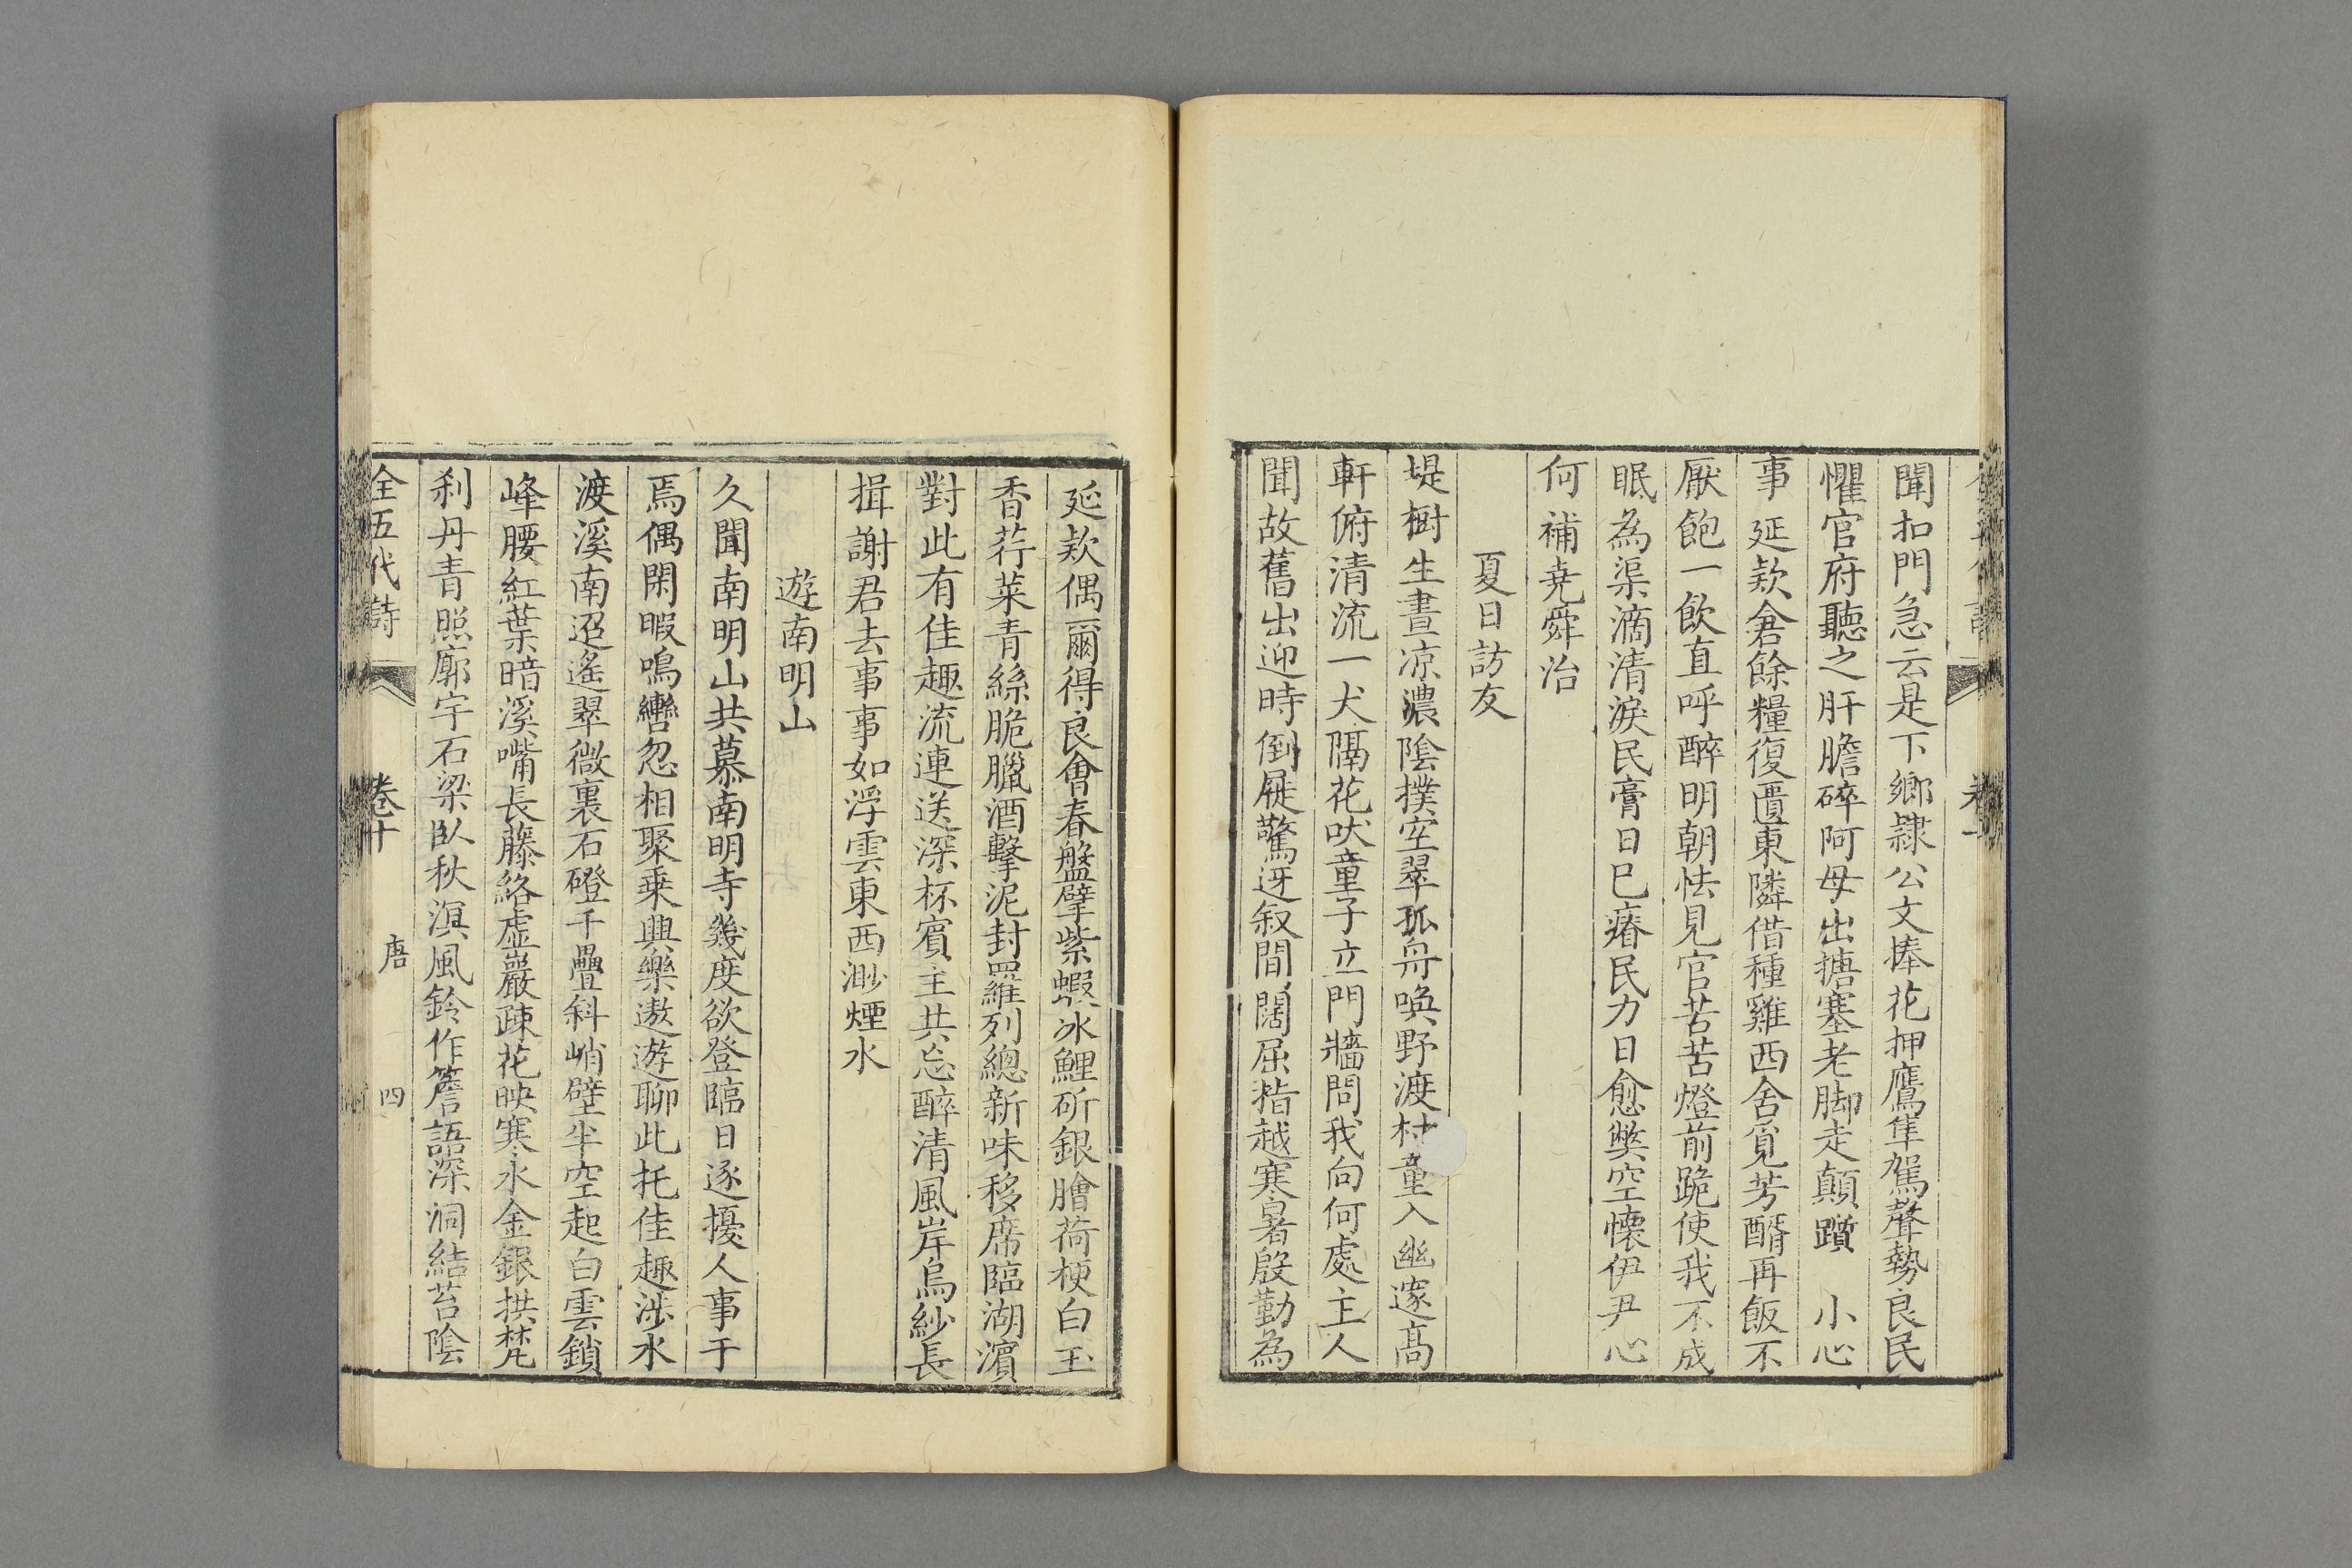 聞扣門急云是下鄉隷公文捧花押鷹隼駕聲勢良民
懼官府聽之肝膽碎阿母出搪塞老脚走顛躓 小心
事延欵倉餘糧復匱東隣借種雞西舍覓芳醑再飯不
厭飽一飲直呼醉明朝怯見官苦苦燈前跪使我不成
眠為渠滴清淚民膏日已瘠民力日愈獘空懷伊尹心
何補堯舜治
夏日訪友
堤樹生晝凉濃陰撲空翠孤舟喚野渡村童入幽邃高
軒俯清流一犬隔花吠童子立門牆問我向何處主人
聞故舊出迎時倒屣驚迓叙間闊屈指越寒暑殷勤為
延欵偶爾得良會春盤擘紫蝦冰鯉斫銀膾荷梗白玉
香荇菜青絲脆臘酒擊泥封羅列總新味移席臨湖濵
對此有佳趣流連送深杯賓主共忘醉清風岸烏紗長
揖謝君去事事如浮雲東西渺煙水
遊南明山
久聞南明山共慕南明寺幾度欲登臨日逐擾人事于
焉偶閑暇鳴轡忽相聚乗興樂遨遊聊此托佳趣涉水
渡溪南迢遙翠微裏石磴千疊斜峭壁半空起白雲鎖
峰腰紅葉暗溪嘴長藤絡虛巖疎花映寒水金銀拱梵
刹丹青照廊宇石梁臥秋溟風鈴作簷語深洞結苔陰
全五代詩 卷十 唐 四